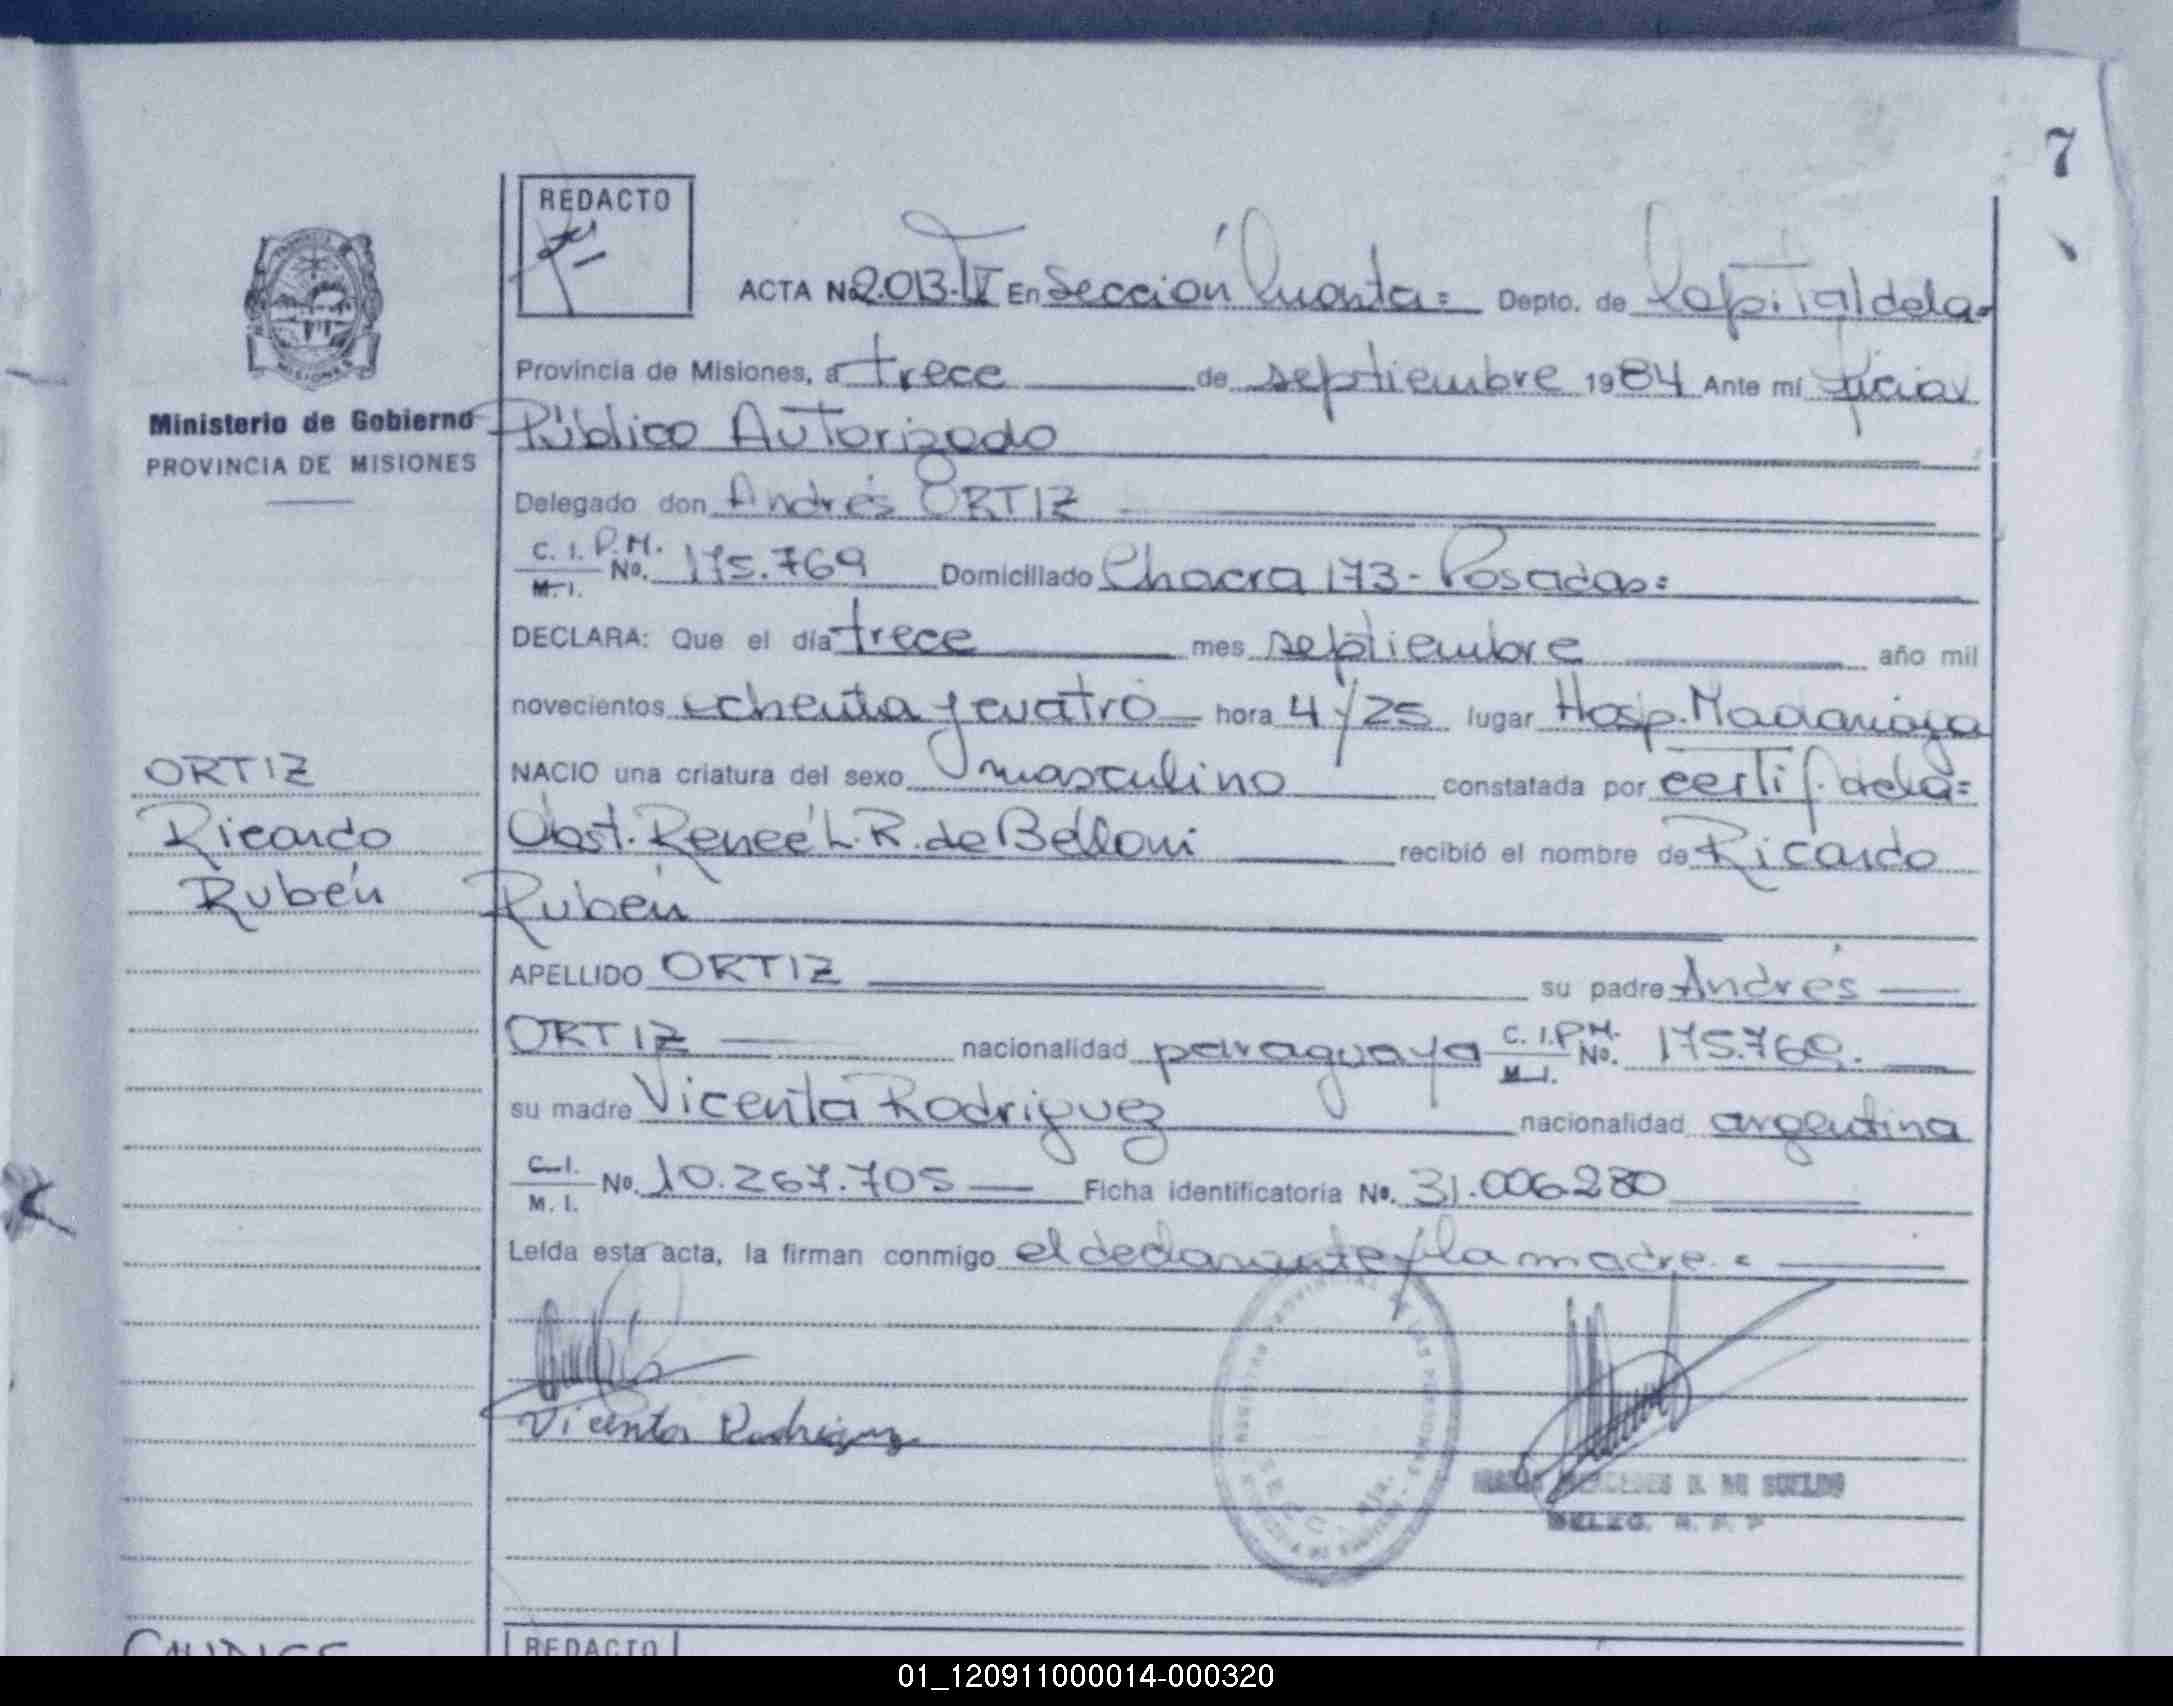 7
REDACTO
ACTA No 2.013-IV En Sección Cuarta= Depto. de Capital de la=
Provincia de Misiones, a trece de septiembre 1984 Ante mí
Público Autorizado
Delegado don Andrés ORTIZ
C. I. P.M. No. 175.769 Domiciliado Chacra 173- Posadas=
M. I.
DECLARA: Que el día trece mes septiembre año mil
novecientos ochenta y cuatro hora 4 y 25 lugar Hosp. Madariaga
NACIO una criatura del sexo masculino constatada por certif. de la=
Obst. Reneé L. R. de Belloni recibió el nombre de Ricardo
Rubén
APELLIDO ORTIZ su padre Andrés
ORTIZ nacionalidad paraguaya C. I. P.M. No. 175.769.
M. I.
su madre Vicenta Rodriguez nacionalidad argentina
C. I. No. 10.267.705 Ficha identificatoria No. 31.006.280
M. I.
Leída esta acta, la firman conmigo el declarante y la madre.=
Vicenta Rodriguez
Ministerio de Gobierno
PROVINCIA DE MISIONES
ORTIZ
Ricardo
Rubén
REDACTO
01_120911000014-000320